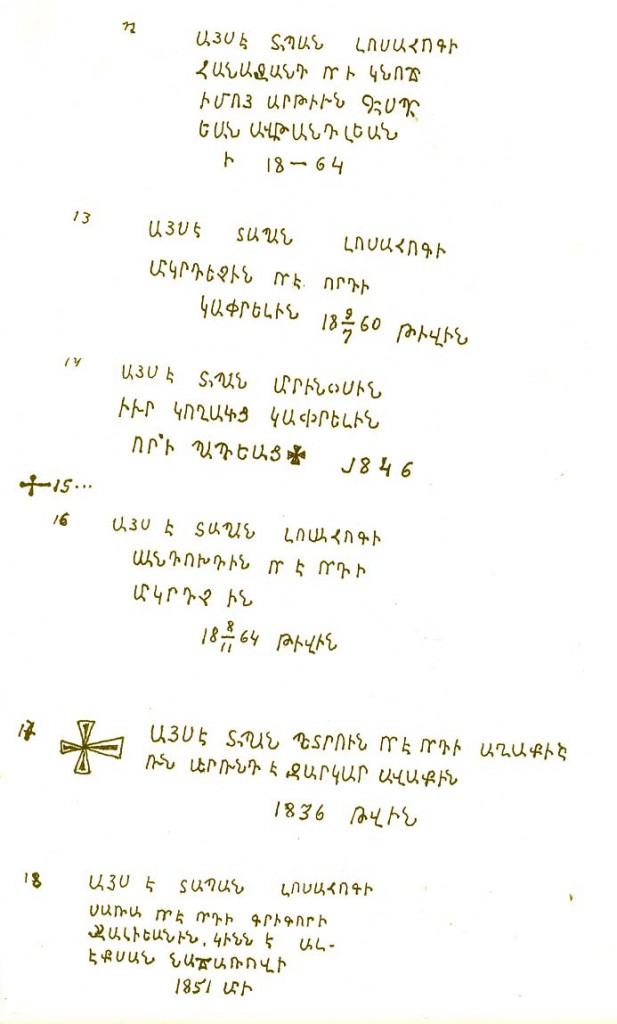 12
ԱՅՍԷ ՏԱՊԱՆ ԼՈՍԱՀՈԳԻ
ՀԱՆԱՋԱՆԴ ՈՐԻ ԿՆՈՋ
ԻՄՈՅ ԱՐԹԻՒՆ
ԵԱՆ ԱՎԹԱՆԴԻԼԵԱՆ
Ի 18—64
13
ԱՅՍԷ ՏԱՊԱՆ ԼՈՍԱՀՈԳԻ
ՄԿՐԴԵՉԻՆ ՈՐԷ ՈՐԴԻ
ԿԱՓՐԵԼԻՆ 18 9/7 60 ԹԻՎԻՆ
14
ԱՅՍԷ ՏԱՊԱՆ
ԻՒՐ ԿՈՂԱԿՑ ԿԱՓՐԵԼԻՆ
1846
15...
16
ԱՅՍ Է ՏԱՊԱՆ ԼՈՍԱՀՈԳԻ
ԱՆԴՈՒԴԻՆ ՈՐ Է ՈՐԴԻ
ՄԿՐԴՉ ԻՆ
18 8/11 64 ԹԻՎԻՆ
17
ԱՅՍԷ ՏԱՊԱՆ ՊԵՏՐՈՒՆ ՈՐԷ ՈՐԴԻ
ԶԱՐԿԱՐ ԱՎԱՔԻՆ
1836 ԹՎԻՆ
18
ԱՅՍ Է ՏԱՊԱՆ ԼՈՍԱՀՈԳԻ
ՍԱՌԱ ՈՐԷ ՈՐԴԻ ԳՐԻԳՈՐԻ
ՋԱԼԻԵԱՆԻՆ, ԿԻՆՆ Է ԱԼ-
ԷՔՍԱՆ ՆԱՋԱՌՈՎԻ
1851 ԱՄԻ